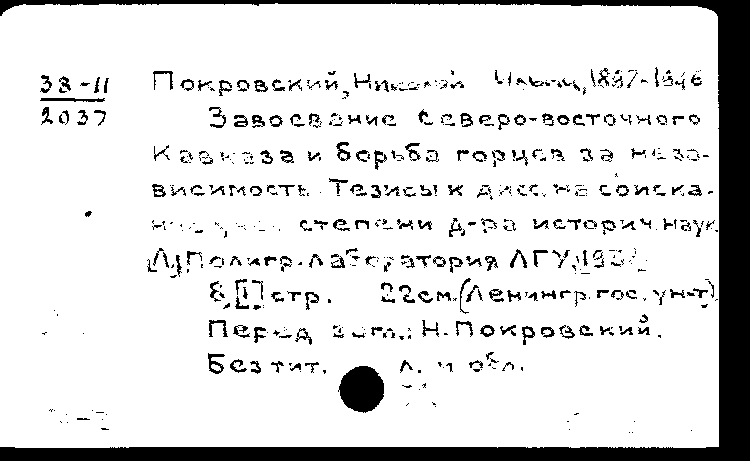 38-11
2037
Покровский, Николай Ильич, 1897-1946
Завоевание Северо-восточного
Кавказа и борьба горцев за неза-
висимость. Тезисы к дисс. на соиска-
ние учен. степени д-ра историч. наук
[Л.] Полигр. лаборатория ЛГУ,
8, [1] стр. 22см. (Ленингр. гос. ун-т)
Перед загл.: Н. Покровский.
Без тит. л. и обл.